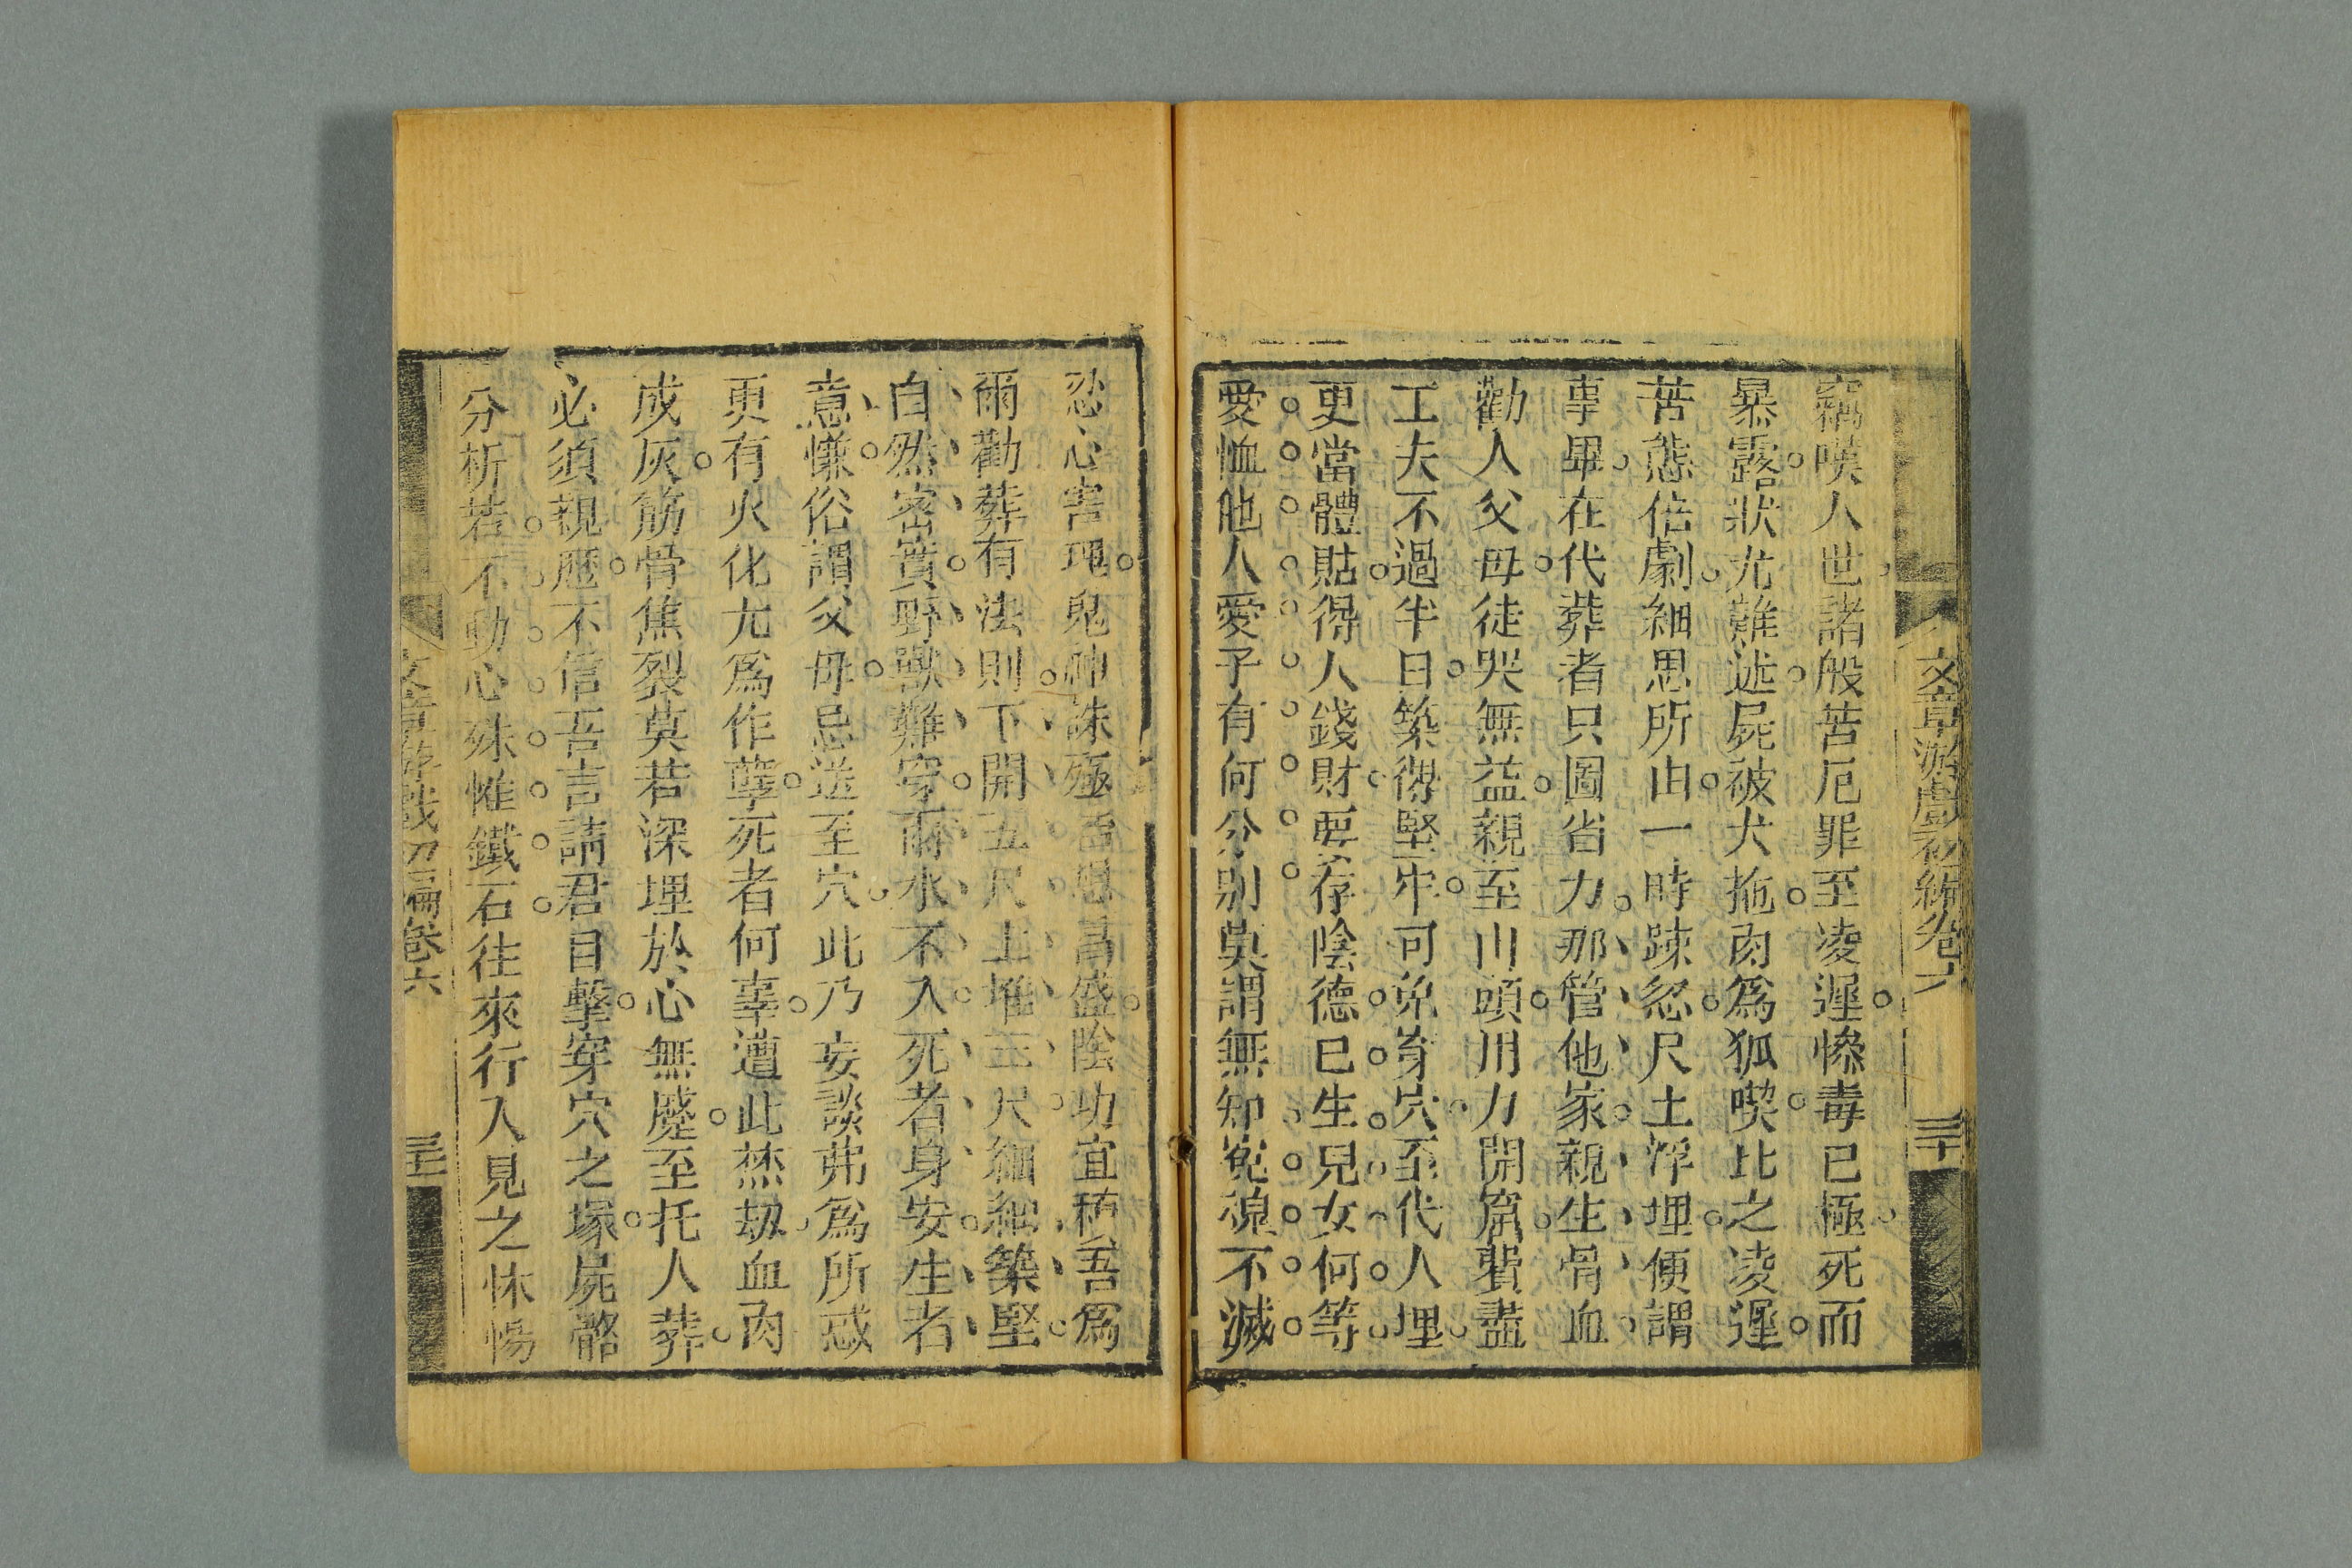 文章游戲初編卷六
三十
竊嘆人世諸般苦厄罪至凌遲慘毒已極死而
暴露狀尤難述屍被犬拖肉爲狐喫比之凌遲
苦態倍劇細思所由一時疎忽尺土浮埋便謂
事畢在代葬者只圖省力那管他家親生骨血
勸人父母徒哭無益親至山頭用力開窩費盡
工夫不過半日築得堅牢可免身穴至代人埋
更當體貼得人錢財要存陰德已生兒女何等
愛恤他人愛子有何分別莫謂無知寃魂不滅
忍心害理鬼神誅殛 昌盛陰功宜積吾爲
爾勸葬有法則下開五尺上堆三尺細細築堅
自然密實野獸難穿雨水不入死者身安生者
意慊俗謂父母忌送至穴此乃妄談弗爲所惑
更有火化尤爲作孽死者何辜遭此焚刼血肉
成灰筋骨焦裂莫若深埋於心無慼至托人葬
必須親歷不信吾言請君目擊穿穴之塚屍骼
分析若不動心殊惟鐵石往來行人見之怵惕
文章游戲初編卷六
三十